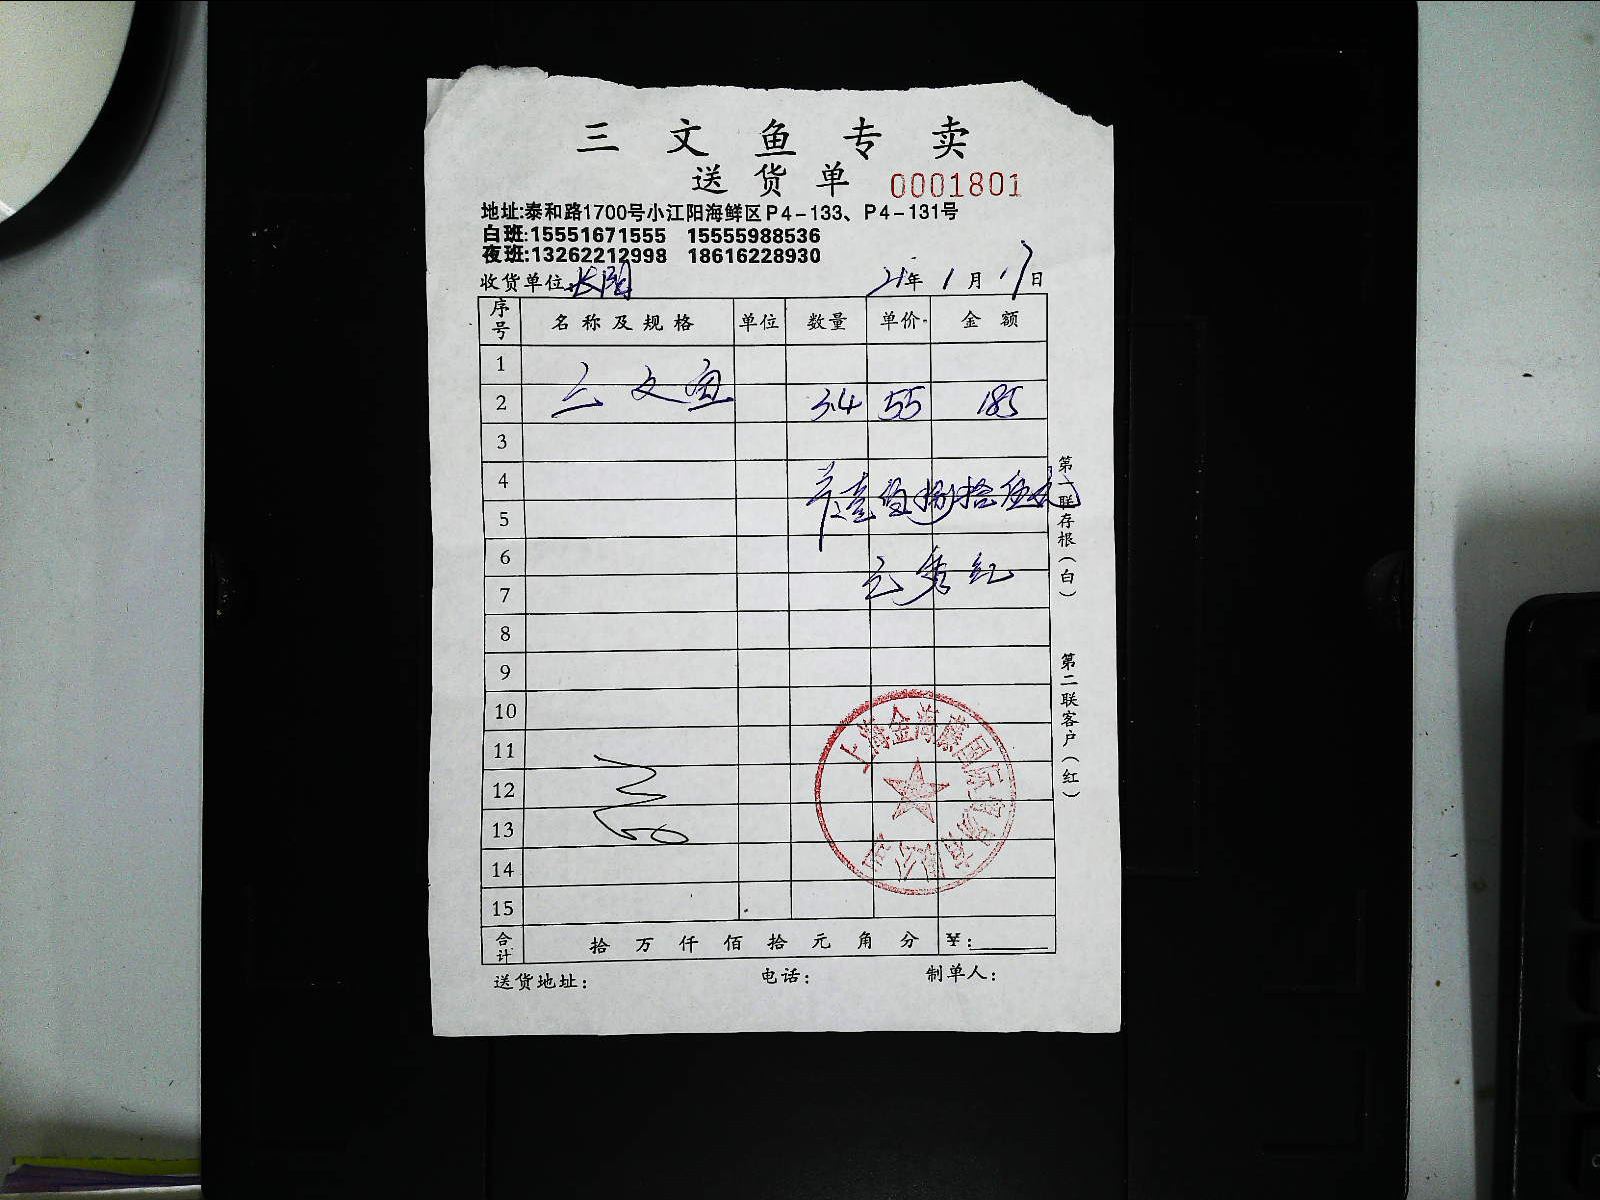 三文鱼专卖
送货单 0001801
地址:泰和路1700号小江阳海鲜区P4-133、P4-131号
白班:15551671555 15555988536
夜班:13262212998 18616228930
收货单位: 21年1月17日
序号 名称及规格 单位 数量 单价 金额
1
2 三文鱼 3.4 55 185
3
4
5 壹佰捌拾伍元
6
7 秀红
8
9
10
11
12
13
14
15
上海金海藤国际贸易有限公司
合计 拾万仟佰拾元角分 ¥:
送货地址: 电话: 制单人:
第一联存根(白)
第二联客户(红)